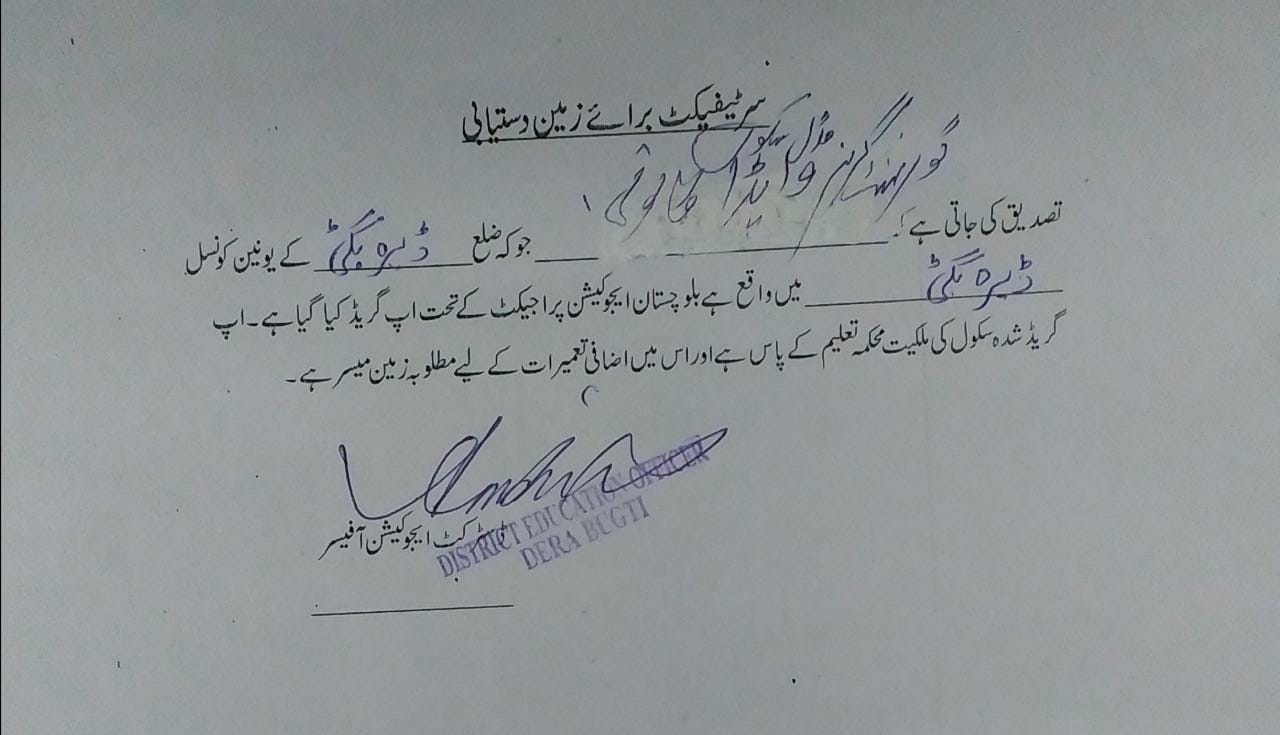 سرٹیفیکٹ برائے زمین دستیابی
گورنمنٹ گرلز مڈل سکول
تصدیق کی جاتی ہے کہ جو کہ ضلع ڈیرہ بگٹی کے یونین کونسل
ڈیرہ بگٹی میں واقع ہے بلوچستان ایجوکیشن پراجیکٹ کے تحت اپ گریڈ کیا گیا ہے۔ اپ
گریڈ شدہ سکول کی ملکیت محکمہ تعلیم کے پاس ہے اور اس میں اضافی تعمیرات کے لیے مطلوبہ زمین میسر ہے۔
ڈسٹرکٹ ایجوکیشن آفیسر
DISTRICT EDUCATION OFFICER
DERA BUGTI